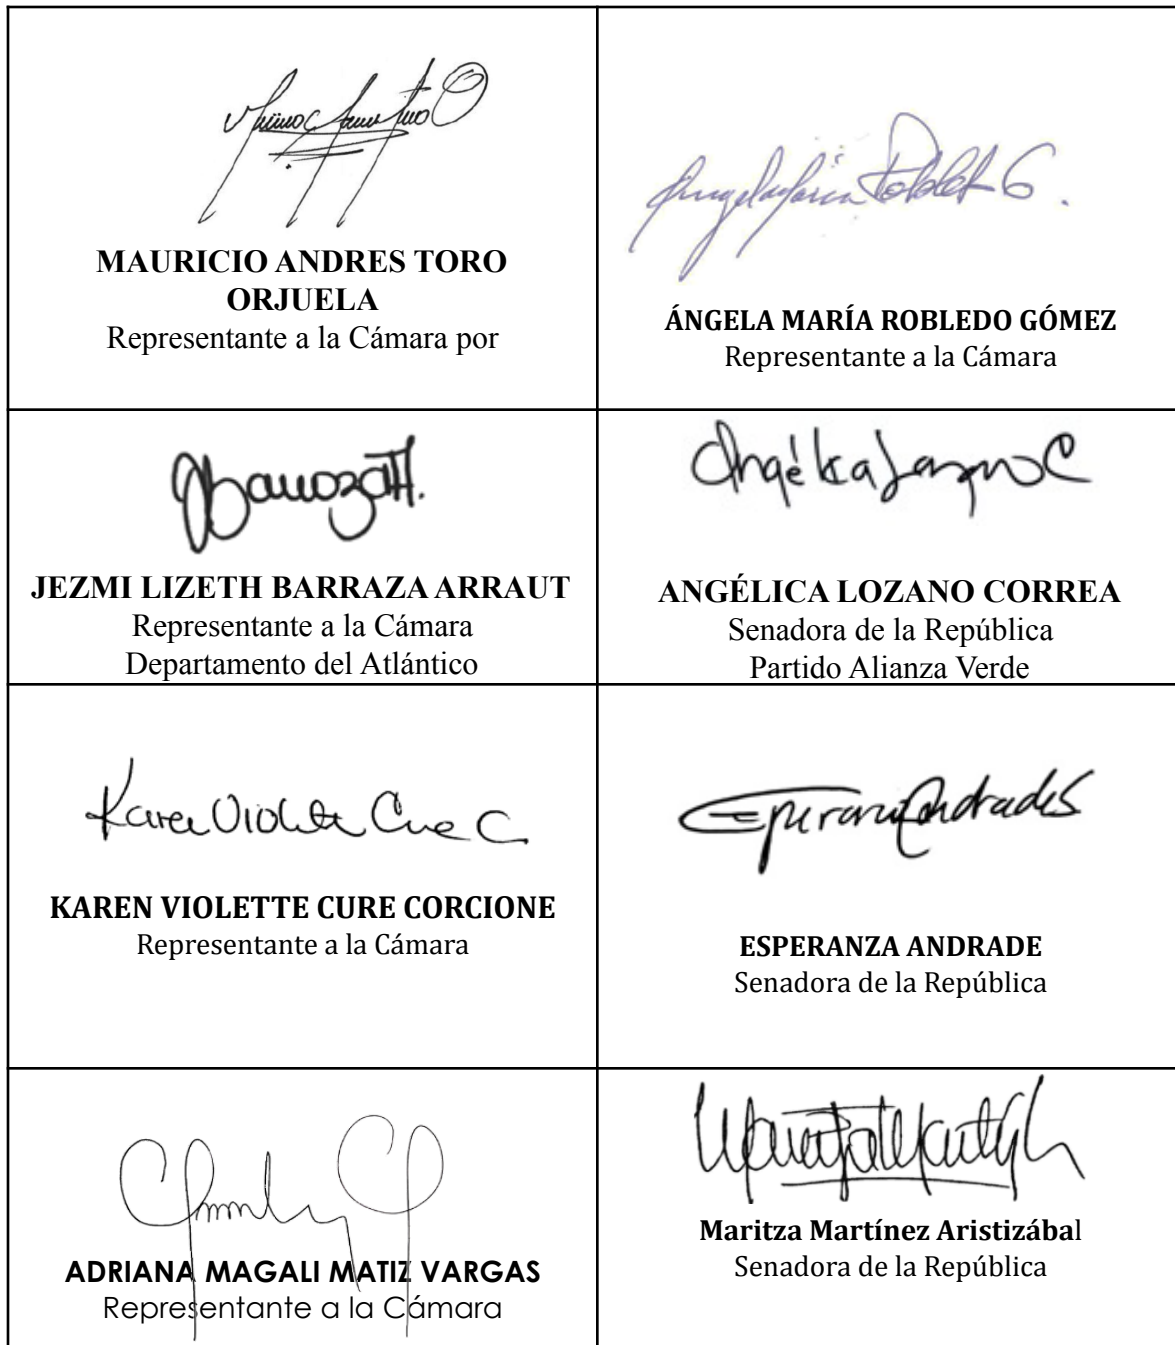 MAURICIO ANDRES TORO
ORJUELA
Representante a la Cámara por
Angela María Robledo G.
ÁNGELA MARÍA ROBLEDO GÓMEZ
Representante a la Cámara
JEZMI LIZETH BARRAZA ARRAUT
Representante a la Cámara
Departamento del Atlántico
Angélica Lozano C
ANGÉLICA LOZANO CORREA
Senadora de la República
Partido Alianza Verde
Karen Violette Cure C
KAREN VIOLETTE CURE CORCIONE
Representante a la Cámara
Esperanza Andrade
ESPERANZA ANDRADE
Senadora de la República
ADRIANA MAGALI MATIZ VARGAS
Representante a la Cámara
Maritza Martínez Aristizábal
Senadora de la República